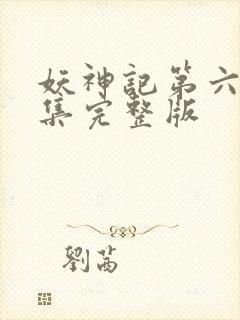 妖神記第六
集完整版
劉茜